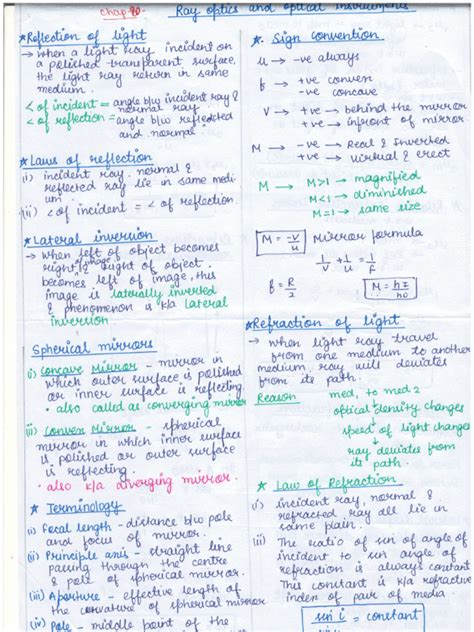 Chap 10. Ray optics and optical instruments
★Reflection of light
→ when a light ray incident on
a polished transparent surface,
the light ray return in same
medium.
< of incident = angle b/w incident ray &
normal ray.
< of reflection = angle b/w reflected
and normal.
★Laws of reflection
(i) incident ray, normal &
reflected ray lie in same medi
um.
(ii) < of incident = < of reflection.
★Lateral inversion
→ when left of object becomes
right of image & right of object
becomes left of image, this
image is laterally inverted
& phenomenon is k/a lateral
inversion
Spherical mirrors
(i) Concave Mirror - mirror in
which outer surface is polished
or inner surface is reflecting.
• also called as converging mirror
(ii) Convex Mirror - spherical
mirror in which inner surface
is polished or outer surface
is reflecting.
• also k/a diverging mirror.
★ Terminology
(i) Focal length - distance b/w pole
and focus of mirror.
(ii) Principle axis - straight line
passing through the centre
& pole of spherical mirror.
(iii) Aperture - effective length of
the curvature of spherical mirror
(iv) Pole - middle point of the
★. Sign convention
u → -ve always
f → +ve convex
-ve concave
V → +ve → behind the mirror
+ve → infront of mirror
M → -ve → Real & Inverted
+ve → virtual & erect
M → M>1 → magnified
M<1 → diminished
M=1 → same size
M = -V/u Mirror formula
1/V + 1/u = 1/f
f = R/2 M = hI/ho
★Refraction of light
→ when light ray travel
from one medium to another
medium, ray will deviates
from its path.
Reason med1 to med 2
optical density changes
↓
speed of light changes
↓
ray deviates from
its path.
★ Law of Refraction
(i) incident ray, normal &
refracted ray all lie in
same plain.
(ii) The ratio of sin of angle of
incident to sin angle of
refraction is always constant
This constant is k/a refractive
index of pair of media.
sin i = constant